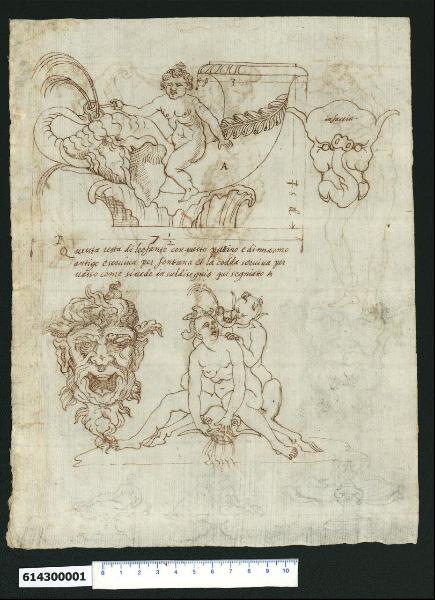 in faccia
A
7 1/2
Questa testa di leofante con questo putino e di marmo
antigo e serviva per fontana et la codda serviva per
vaso come si vede in nel disegnio qui segniato A
614300001
0 1 2 3 4 5 6 7 8 9 10